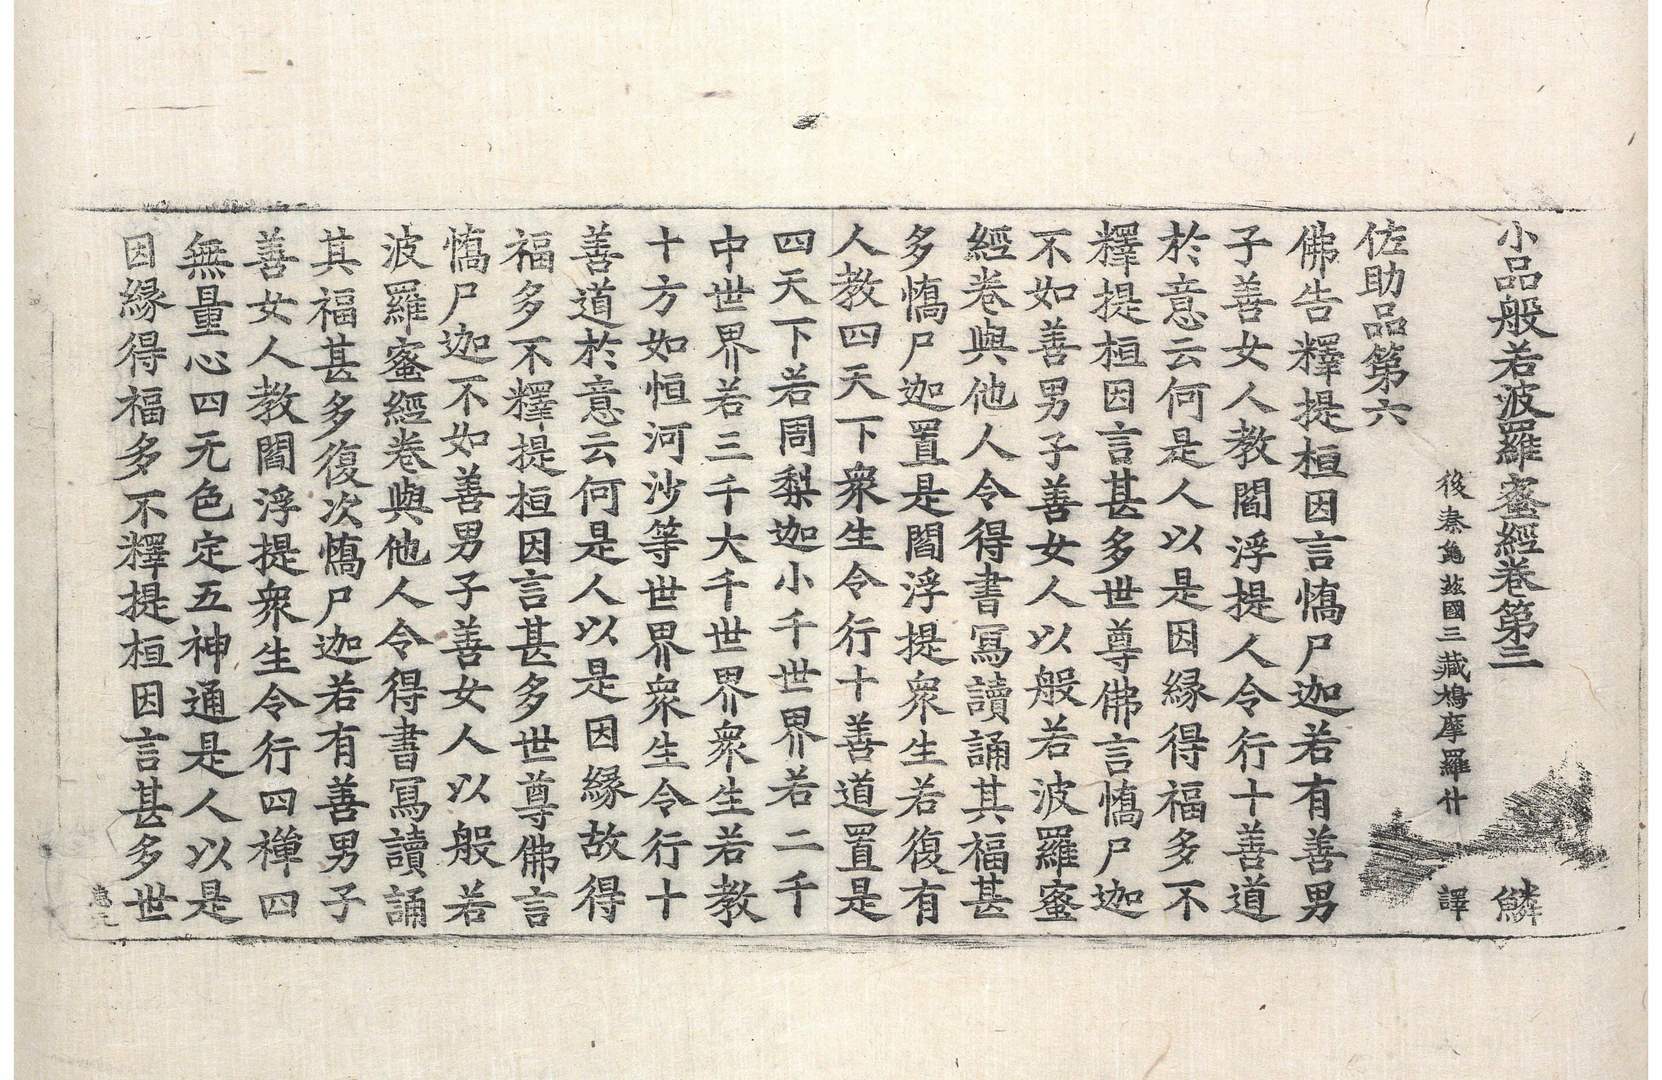 小品般若波羅蜜經卷第三 鱗
後秦龜茲國三藏鳩摩羅什 譯
佐助品第六
佛告釋提桓因言憍尸迦若有善男
子善女人教閻浮提人令行十善道
於意云何是人以是因緣得福多不
釋提桓因言甚多世尊佛言憍尸迦
不如善男子善女人以般若波羅蜜
經卷與他人令得書寫讀誦其福甚
多憍尸迦置是閻浮提衆生若復有
人教四天下衆生令行十善道置是
四天下若周梨迦小千世界若二千
中世界若三千大千世界衆生若教
十方如恒河沙等世界衆生令行十
善道於意云何是人以是因緣故得
福多不釋提桓因言甚多世尊佛言
憍尸迦不如善男子善女人以般若
波羅蜜經卷與他人令得書寫讀誦
其福甚多復次憍尸迦若有善男子
善女人教閻浮提衆生令行四禪四
無量心四无色定五神通是人以是
因緣得福多不釋提桓因言甚多世